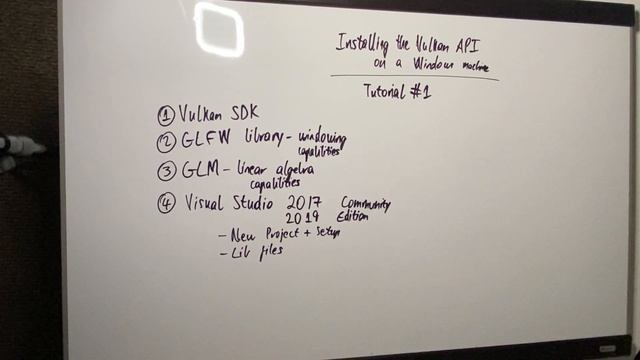 Installing the Vulkan API
on a Window machine
Tutorial #1
① Vulkan SDK
② GLFW library - windowing
capabilities
③ GLM - linear algebra
capabilities
④ Visual Studio 2017 Community
2019 Edition
- New Project + Setup
- Lib files